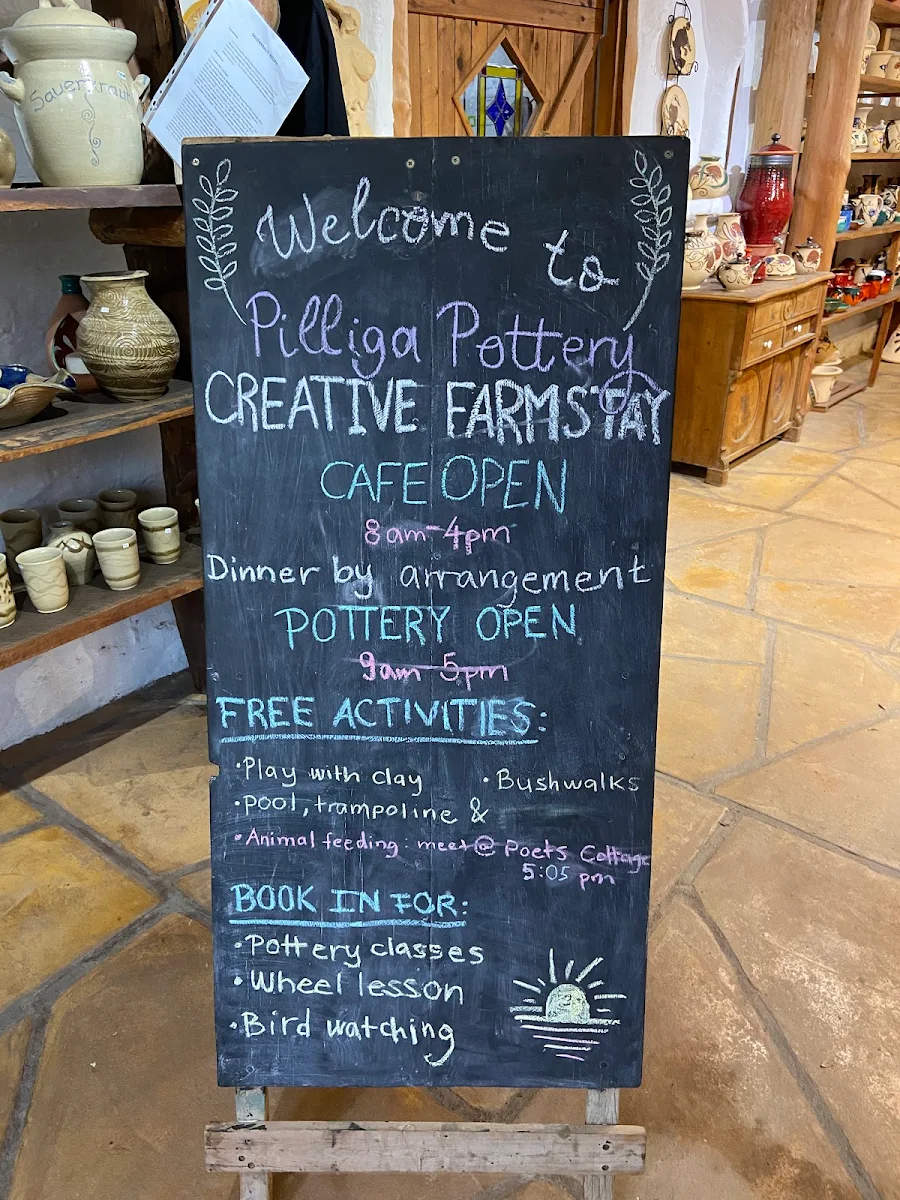 Sauerkraut
Welcome to
Pilliga Pottery
CREATIVE FARMSTAY
CAFE OPEN
8am-4pm
Dinner by arrangement
POTTERY OPEN
9am-5pm
FREE ACTIVITIES:
•Play with clay •Bushwalks
•pool, trampoline &
•Animal feeding: meet @ Poets Cottage
5:05 pm
BOOK IN FOR:
•Pottery classes
•Wheel lesson
•Bird watching